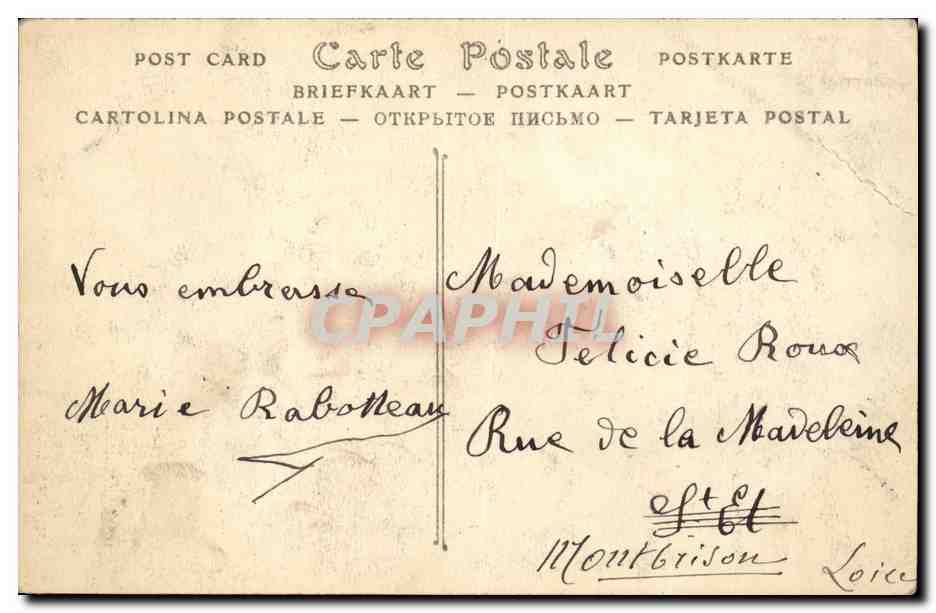 POST CARD Carte Postale POSTKARTE
BRIEFKAART — POSTKAART
CARTOLINA POSTALE — ОТКРЫТОЕ ПИСЬМО — TARJETA POSTAL
Vous embrasse
Marie Rabotteau
Mademoiselle
Felicie Roux
Rue de la Madeleine
St Et
Montbrison
Loire
CPAPHIL